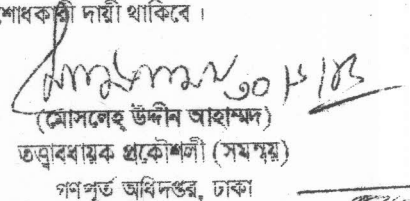 শোধকারী দায়ী থাকিবে ।
৩০
(মোসলেহ্ উদ্দীন আহাম্মদ)
তত্ত্বাবধায়ক প্রকৌশলী (সমন্বয়)
গণপূর্ত অধিদপ্তর, ঢাকা